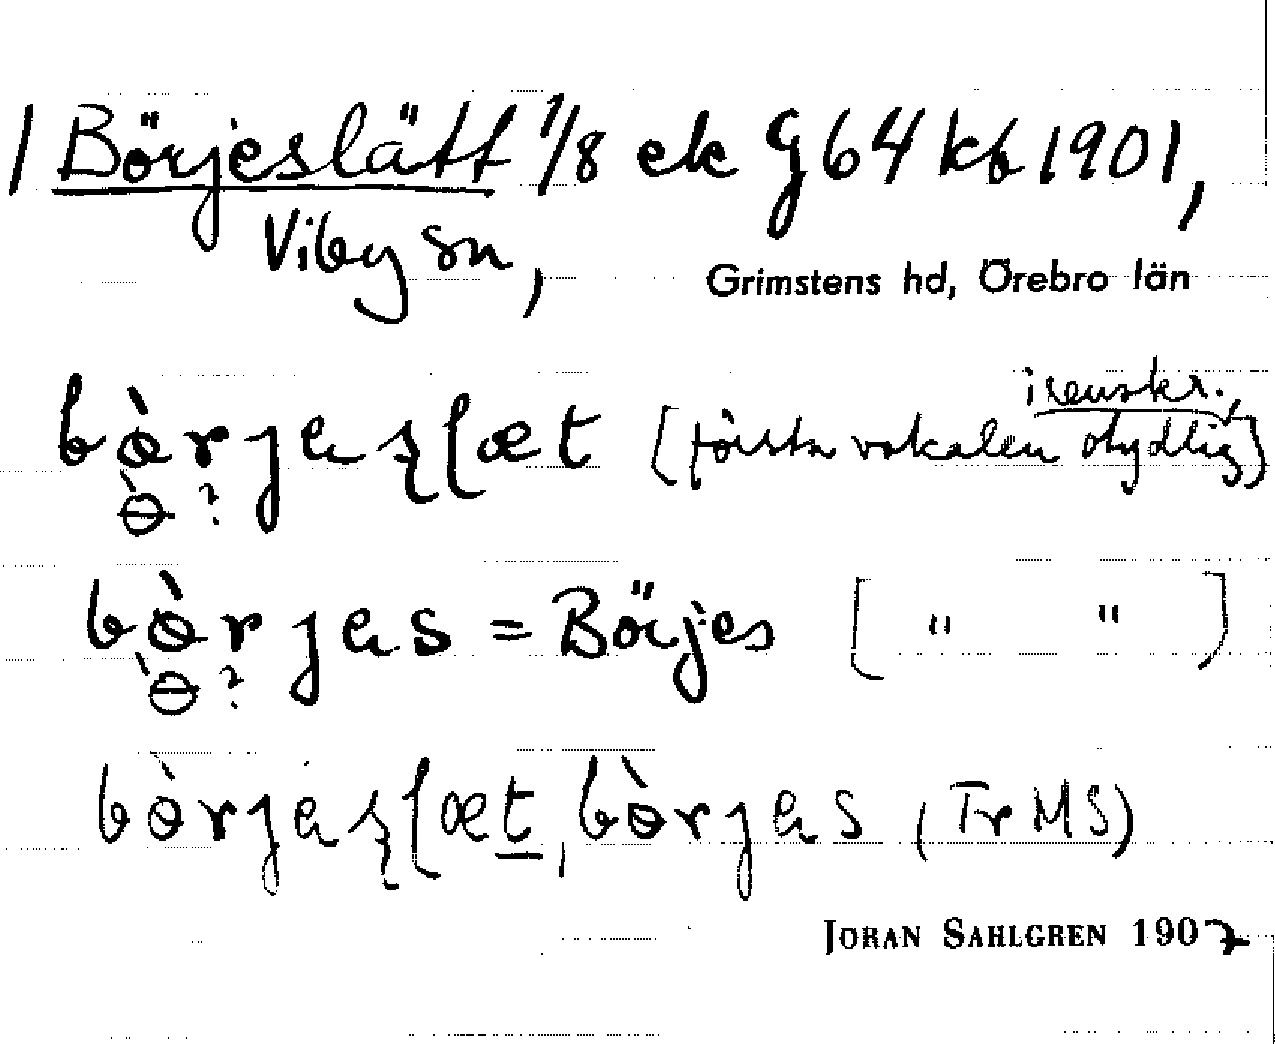 1 Börjeslätt 1/8 ek G64 kb 1901,
Viby sn,
Grimstens hd, Örebro län
i renskr.,
bɵ̀rjesʂlæt [första vokalen otydlig]
ɵ̀ ?
bɵ̀rjes = Börjes [ " " ]
ɵ̀ ?
bɵ̀rjesʂlæt, bɵ̀rjes (Tr MS)
JÖRAN SAHLGREN 1907